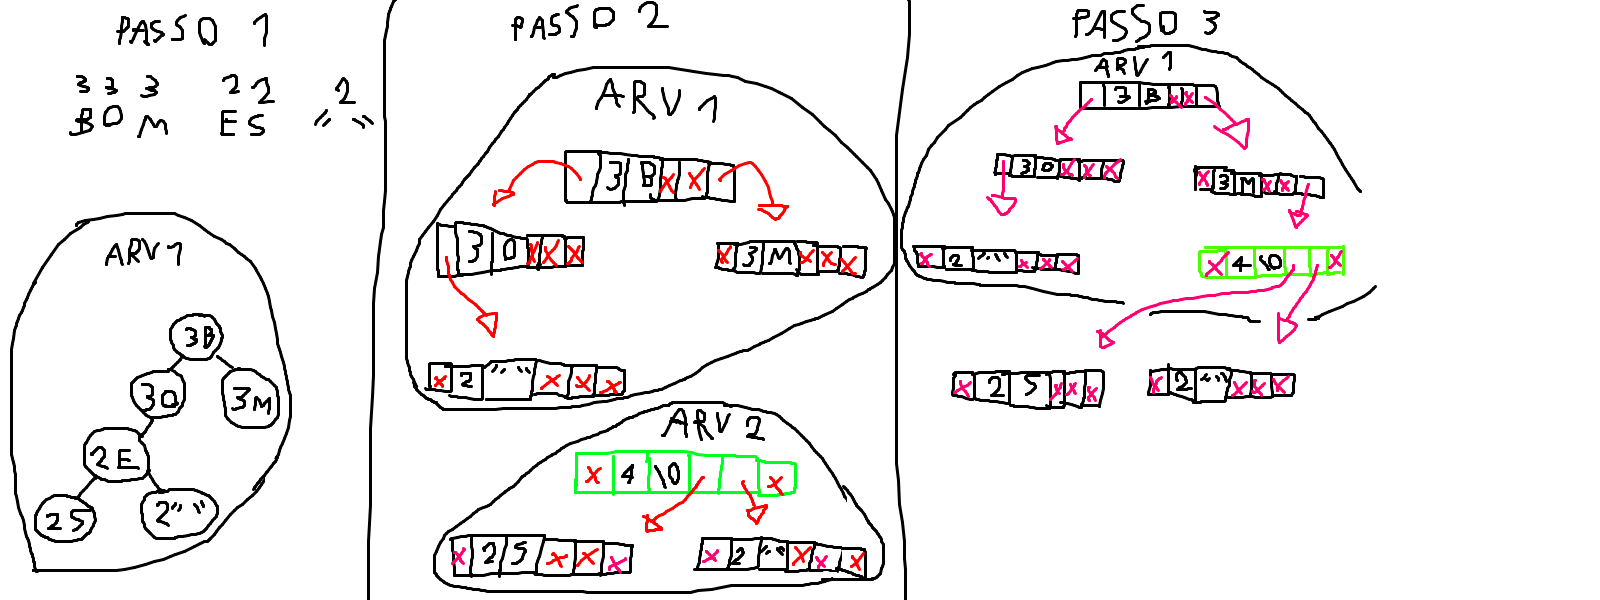 PASSO 1
3 3 3 2 2 2
B O M E S " "
ARV 1
3B
3O 3M
2E
2S 2" "
PASSO 2
ARV 1
3 B X X
3 O X X X
X 3 M X X X
X 2 " " X X X
ARV 2
X 4 \0 X
X 2 S X X X
X 2 " " X X X
PASSO 3
ARV 1
3 B X X
3 O X X X
X 3 M X X
X 2 " " X X X
X 4 \0 X
X 2 S X X X
X 2 " " X X X